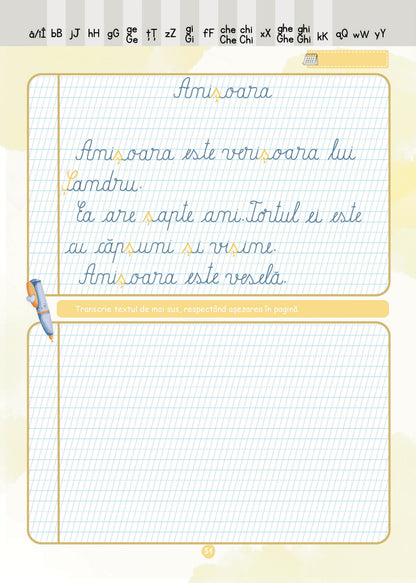 â/îÎ bB jJ hH gG ge Ge țȚ zZ gi Gi fF che Che chi Chi xX ghe Ghe ghi Ghi kK qQ wW yY
Anișoara
Anișoara este verișoara lui
Șandru.
Ea are șapte ani. Tortul ei este
cu căpșuni și vișine.
Anișoara este veselă.
Transcrie textul de mai sus, respectând așezarea în pagină.
51